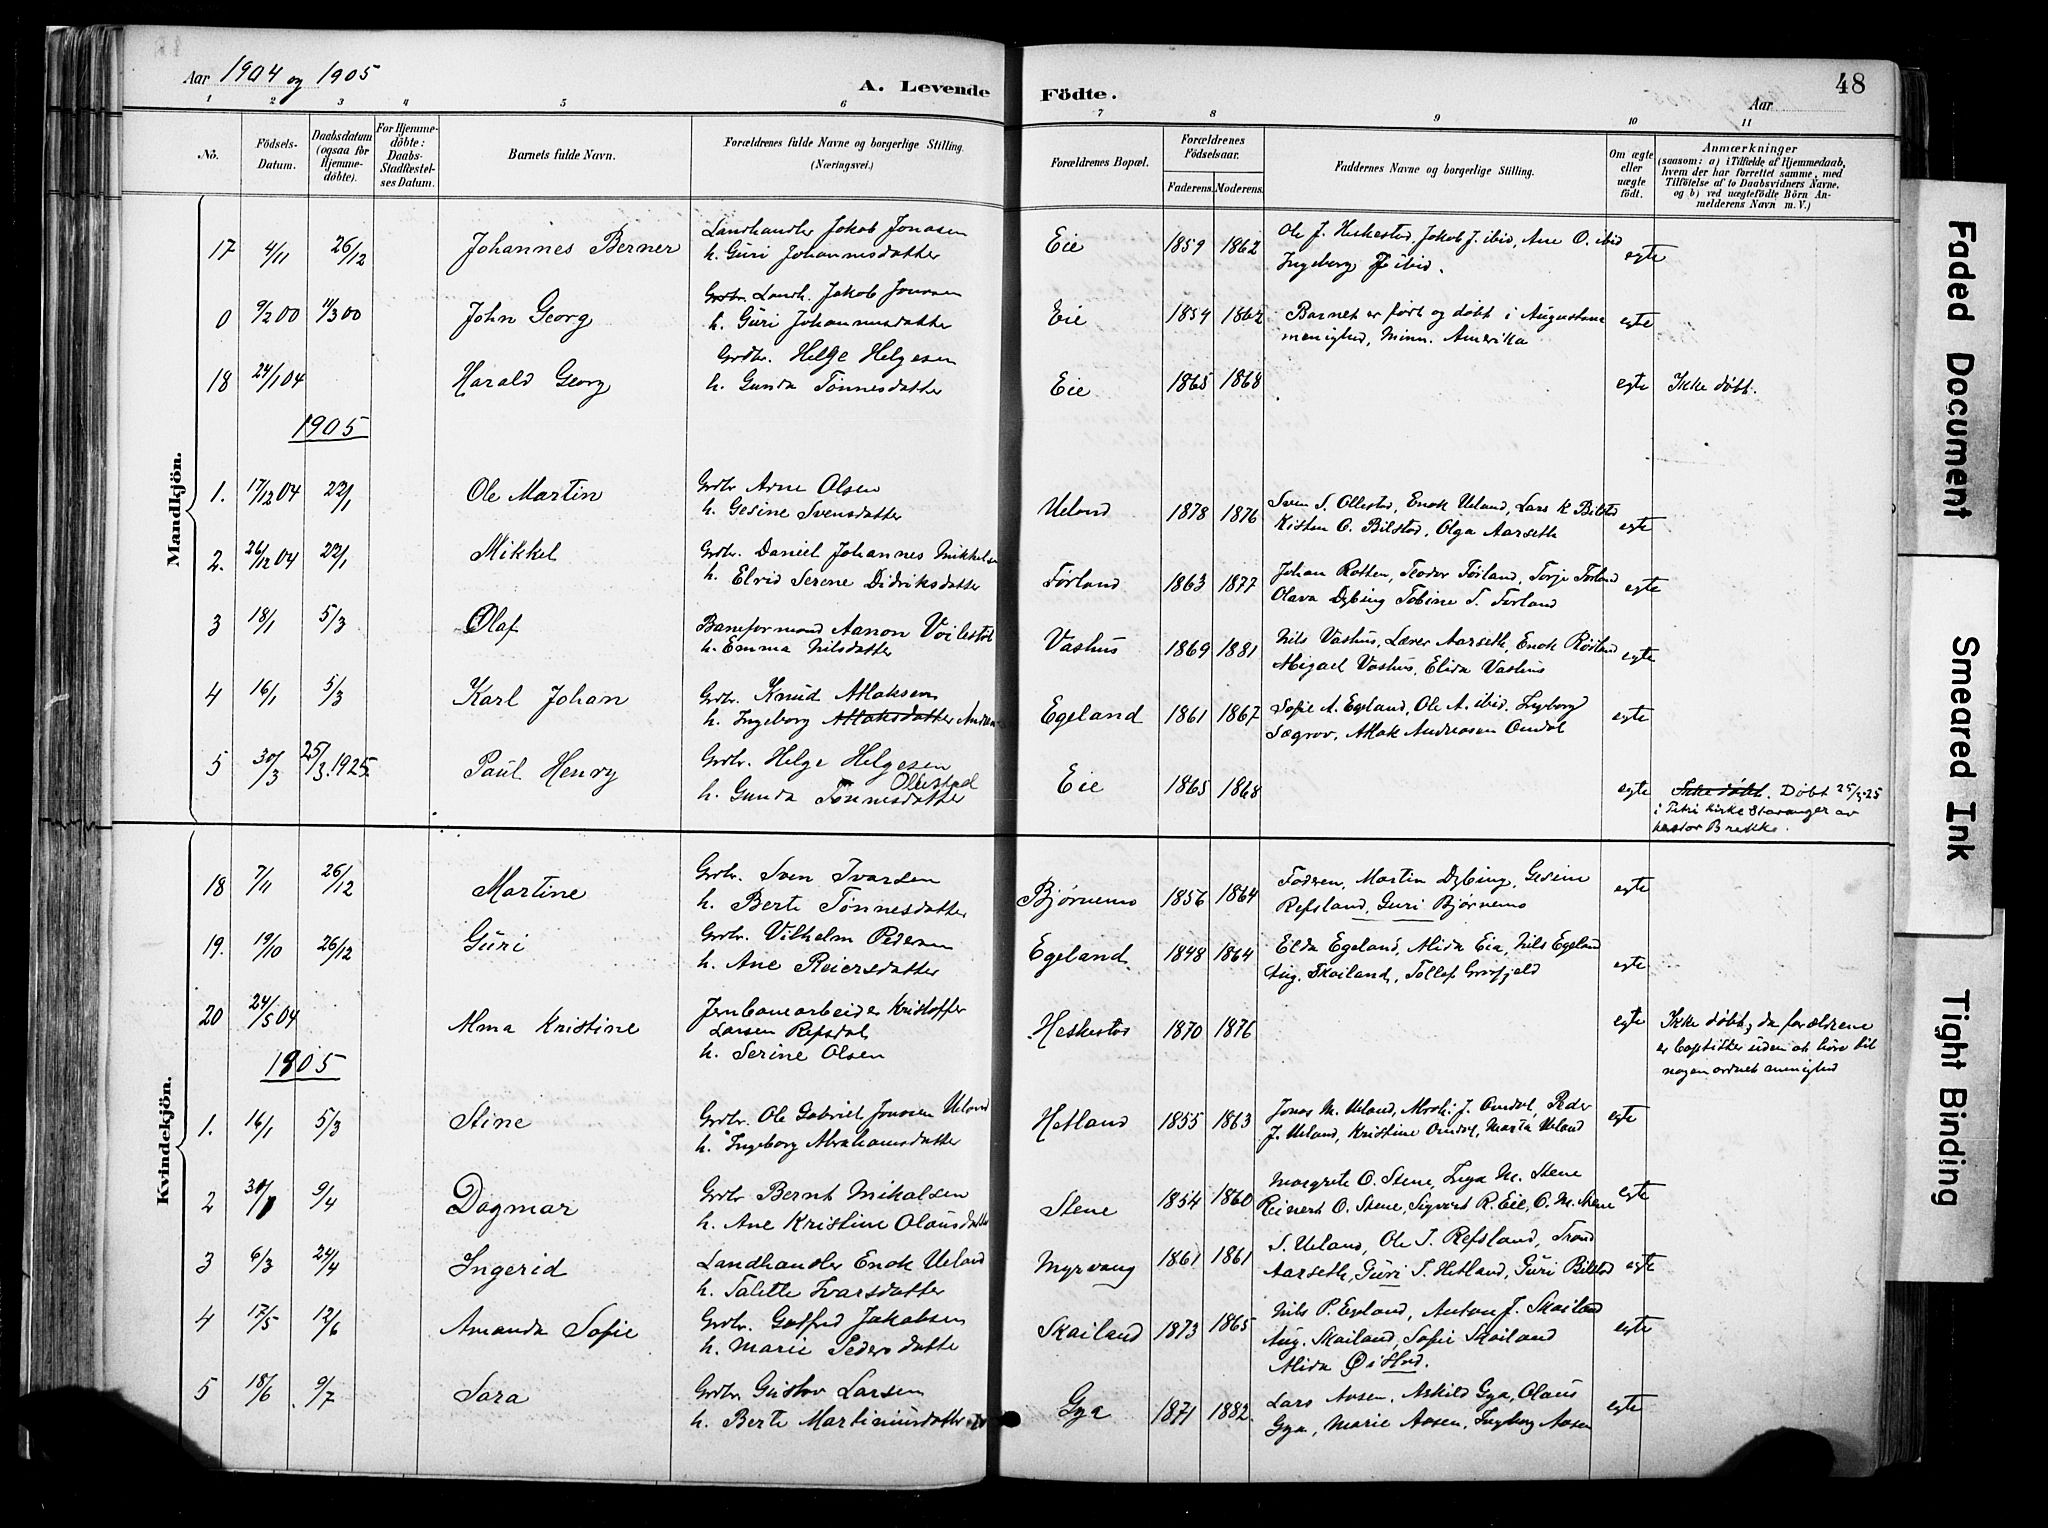 Aar 1904 og 1905
A. Levende Födte.
Aar
48
1 2 3 4 5 6 7 8 9 10 11
No.
Födsels-Datum.
Daabsdatum (ogsaa for Hjemme-döbte).
For Hjemme-döbte: Daabs-Stadfæstel-ses Datum.
Barnets fulde Navn.
Forældrenes fulde Navne og borgerlige Stilling. (Næringsvei.)
Forældrenes Bopæl.
Forældrenes Födselsaar.
Faderens. Moderens.
Faddernes Navne og borgerlige Stilling.
Om ægte eller uægte födt.
Anmærkninger
(saasom: a) i Tilfælde af Hjemmedaab, hvem der har forrettet samme, med Tilföielse af to Daabsvidners Navne, og b) ved uægtefödte Börn An-melderens Navn m. V.)
Mandkjön.
17 4/11 26/12 Johannes Berner Landhandler Jakob Jonasen
h. Guri Johannesdatter Eie 1859 1862 Ole J. Heskestad, Jakob J. ibid, Ane O. ibid
Ingeborg J ibid. egte
0 9/2 00 11/3 00 John Georg Grdbr. Landh. Jakob Jonasen
h. Guri Johannesdatter Eie 1854 1862 Barnet er født og døbt i Augustana
menighed, Minn. Amerika egte
18 24/1 04 Harald Georg Grdbr. Helge Helgesen
h. Gunda Tønnesdatter Eie 1865 1868 egte Ikke døbt.
1905
1. 17/12 04 22/1 Ole Martin Grdbr Arne Olsen
h. Gesine Svensdatter Ueland 1878 1876 Sven S. Ollestad, Enok Ueland, Lars K Bilstad
Kisten O. Bilstad, Olga Aarseth egte
2. 26/12 04 22/1 Mikkel Grdbr. Daniel Johannes Mikkelsen
h. Elvid Serene Didriksdatter Førland 1863 1877 Johan Rotten, Teodor Førland, Torje Førland
Olava Dybing Tobine T. Førland egte
3 18/1 5/3 Olaf Baneformand Aanon Voilestad
h. Emma Nilsdatter Vashus 1869 1881 Nils Vashus, Lærer Aarseth, Enok Rødland
Abigael Vashus, Elida Vashus egte
4 16/1 5/3 Karl Johan Grdbr. Knud Atlaksen
h. Ingeborg Atlaksdatter Egeland 1861 1867 Sofie A. Egeland, Ole A. ibid, Ingborg
Sægrov, Atlak Andreasen Omdal egte
5 30/3 25/3.1925. Paul Henry Grdbr. Helge Helgesen
Ollestad
h. Gunda Tønnesdatter Eie 1865 1868 egte Ikke døbt. Døbt 25/3-25
i Petri kirke Stavanger av
pastor Brekke.
Kvindekjön.
18 7/11 26/12 Martine Grdbr. Sven Ivarsen
h. Berte Tønnesdatter Bjørnemo 1856 1864 Faderen, Martin Dybing, Gesine
Refsland, Guri Bjørnemo egte
19. 19/10 26/12 Guri Grdbr. Vilhelm Pedersen
h. Ane Reiersdatter Egeland. 1848 1864 Elda Egeland, Alida Eia, Nils Egeland
Aug. Skailand, Tollef egte
20 24/5 04 Alma Kristine Jernbanearbeider Kristoffer
Larsen Refsdal
h. Serine Olsen Heskestad 1870 1876 egte Ikke døbt, da forældrene
er baptister uden at høre til
nogen ordnet menighed
1905
1. 16/1 5/3 Stine Grdbr. Ole Gabriel Jonasen Ueland
h. Ingeborg Abrahamsdatter Hetland 1855 1863 Jonas M. Ueland, J. Omdal, Peder
J. Ueland, Kristine Omdal, Marta Ueland egte
2 30/1 9/4 Dagmar Grdbr Bernt Mikalsen
h. Ane Kristine Olausdatter Stene 1854 1860 Margrete O. Stene, Inga M. Stene
Reinert O. Stene, Sigvart R. Eie, O. M. Stene egte
3 6/3 24/4 Ingerid Landhandler Enok Ueland
h. Talette Ivarsdatter Myrvang 1861 1861 S. Ueland, Ole I. Refsland, Trond
Aarseth, Guri T. Hetland, Guri Bilstad egte
4 17/5 12/6 Amanda Sofie Grdbr. Gotfred Jakobsen
h. Marie Pedersdatte Skailand 1873 1865 Nils P. Egeland, Anton J. Skailand
Aug. Skailand, Sofie Skailand
Alida egte
5 18/6 9/7 Sara Grdbr Gustav Larsen
h. Berte Martiniusdatter Gya 1871 1882. Lars Aasen, Askild Gya, Olaus
Gya, Marie Aasen, Ingborg Aasen egte
Faded Document
Smeared Ink
Tight Binding